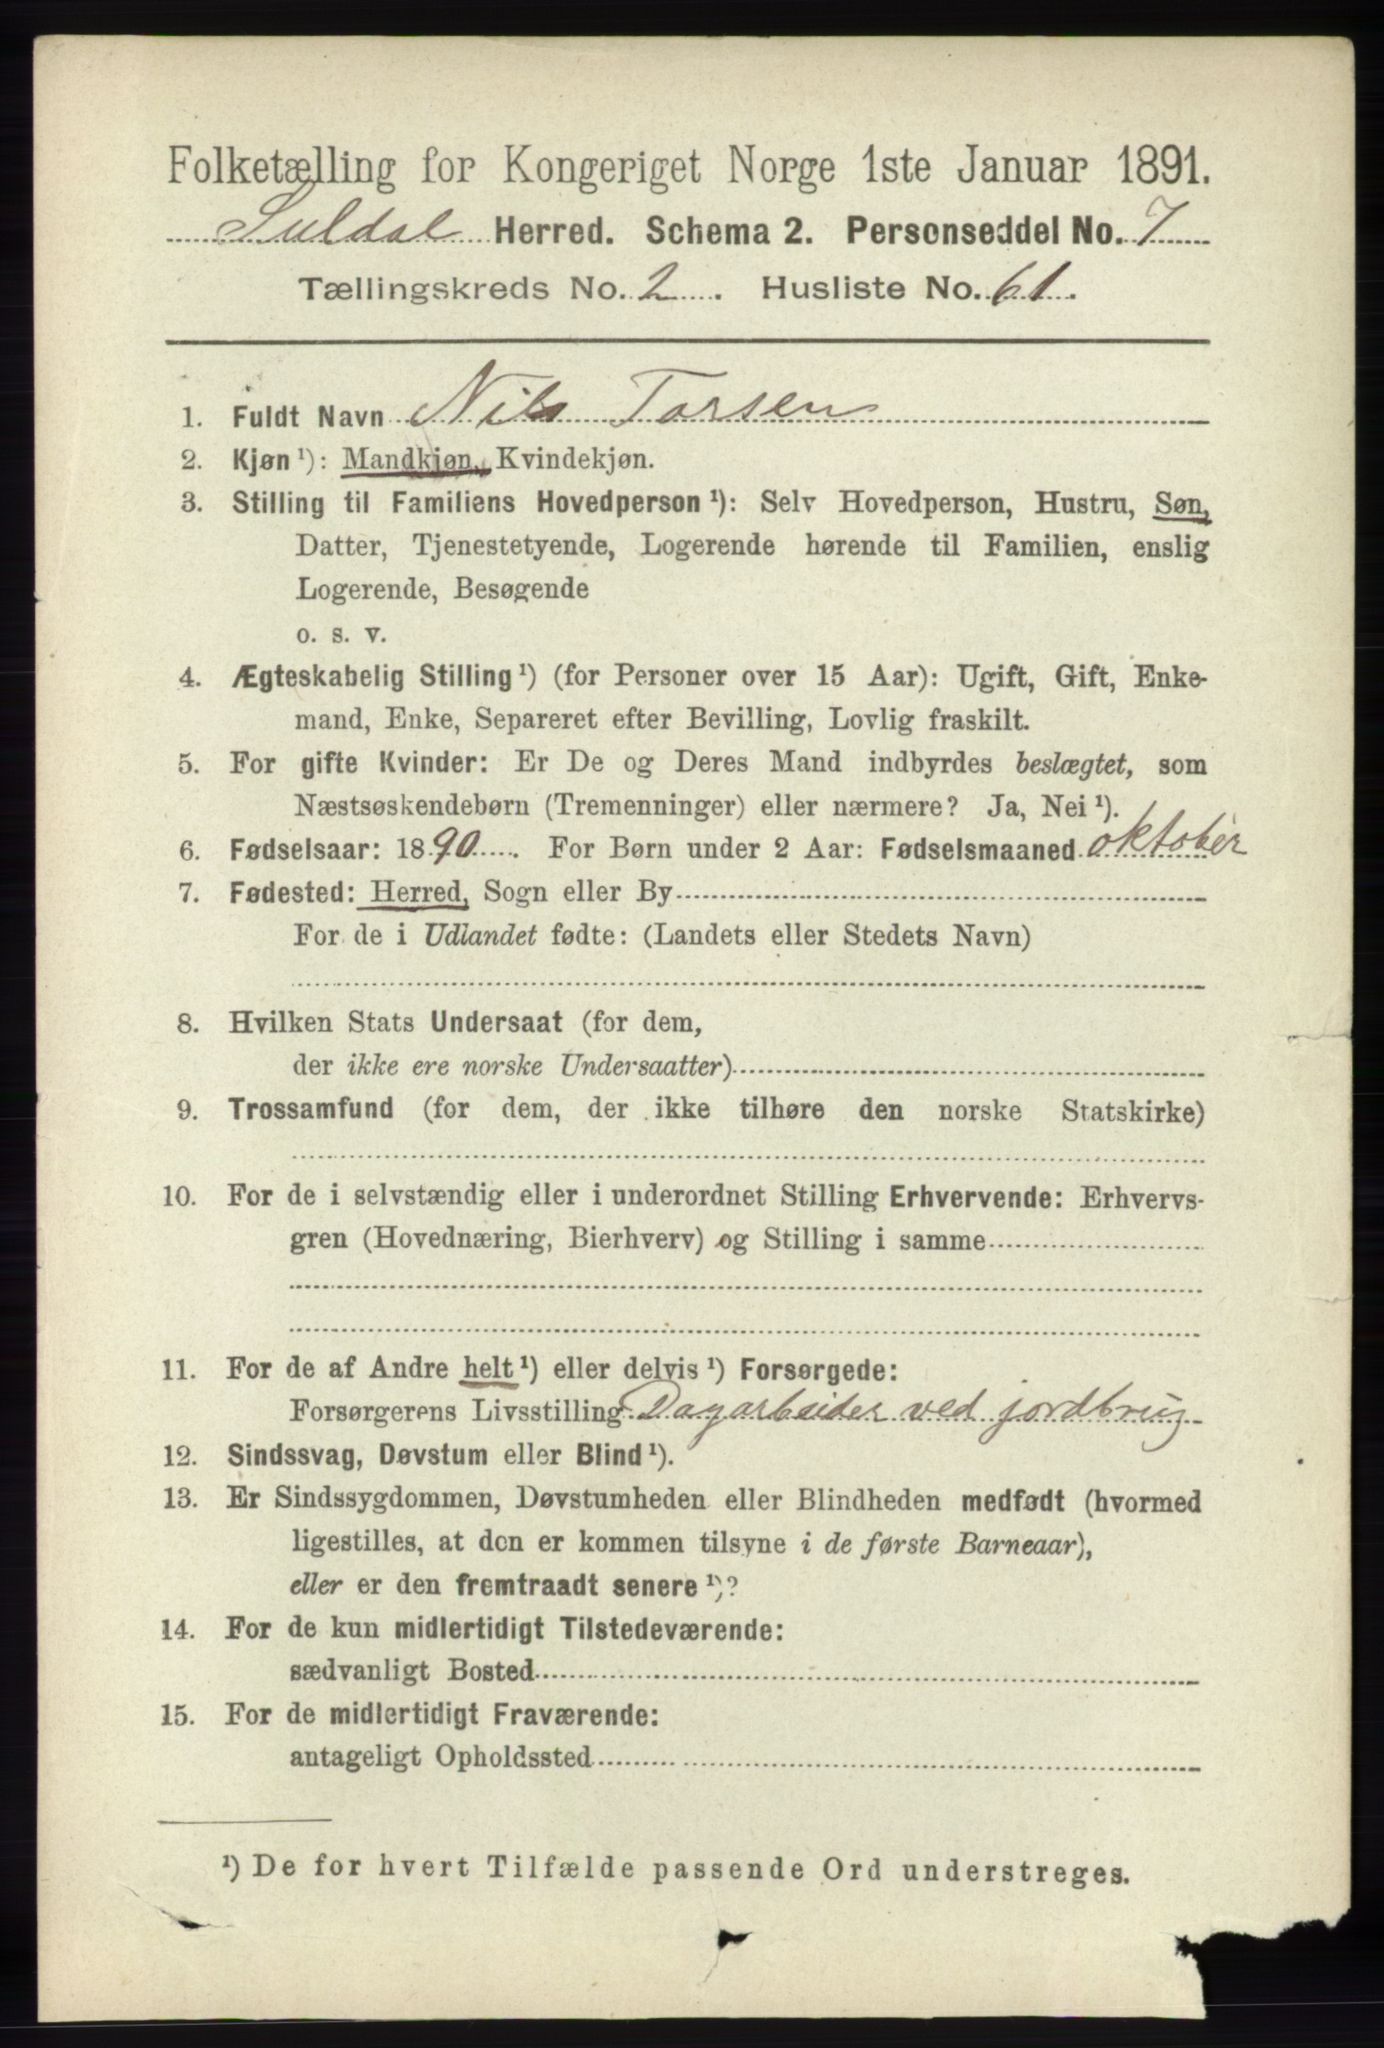 Folketælling for Kongeriget Norge 1ste Januar 1891.
Suldal Herred. Schema 2. Personseddel No. 7
Tællingskreds No. 2. Husliste No. 61.
1. Fuldt Navn Nils Torsen
2. Kjøn ¹): Mandkjøn, Kvindekjøn.
3. Stilling til Familiens Hovedperson ¹): Selv Hovedperson, Hustru, Søn,
Datter, Tjenestetyende, Logerende hørende til Familien, enslig
Logerende, Besøgende
o. s. v.
4. Ægteskabelig Stilling ¹) (for Personer over 15 Aar): Ugift, Gift, Enke-
mand, Enke, Separeret efter Bevilling, Lovlig fraskilt.
5. For gifte Kvinder: Er De og Deres Mand indbyrdes beslægtet, som
Næstsøskendebørn (Tremenninger) eller nærmere? Ja, Nei ¹).
6. Fødselsaar: 1890. For Børn under 2 Aar: Fødselsmaaned oktober
7. Fødested: Herred, Sogn eller By
For de i Udlandet fødte: (Landets eller Stedets Navn)
8. Hvilken Stats Undersaat (for dem,
der ikke ere norske Undersaatter)
9. Trossamfund (for dem, der ikke tilhøre den norske Statskirke)
10. For de i selvstændig eller i underordnet Stilling Erhvervende: Erhvervs-
gren (Hovednæring, Bierhverv) og Stilling i samme
11. For de af Andre helt ¹) eller delvis ¹) Forsørgede:
Forsørgerens Livsstilling Dagarbeider ved jordbrug
12. Sindssvag, Døvstum eller Blind ¹).
13. Er Sindssygdommen, Døvstumheden eller Blindheden medfødt (hvormed
ligestilles, at den er kommen tilsyne i de første Barneaar),
eller er den fremtraadt senere ¹)?
14. For de kun midlertidigt Tilstedeværende:
sædvanligt Bosted
15. For de midlertidigt Fraværende:
antageligt Opholdssted
¹) De for hvert Tilfælde passende Ord understreges.